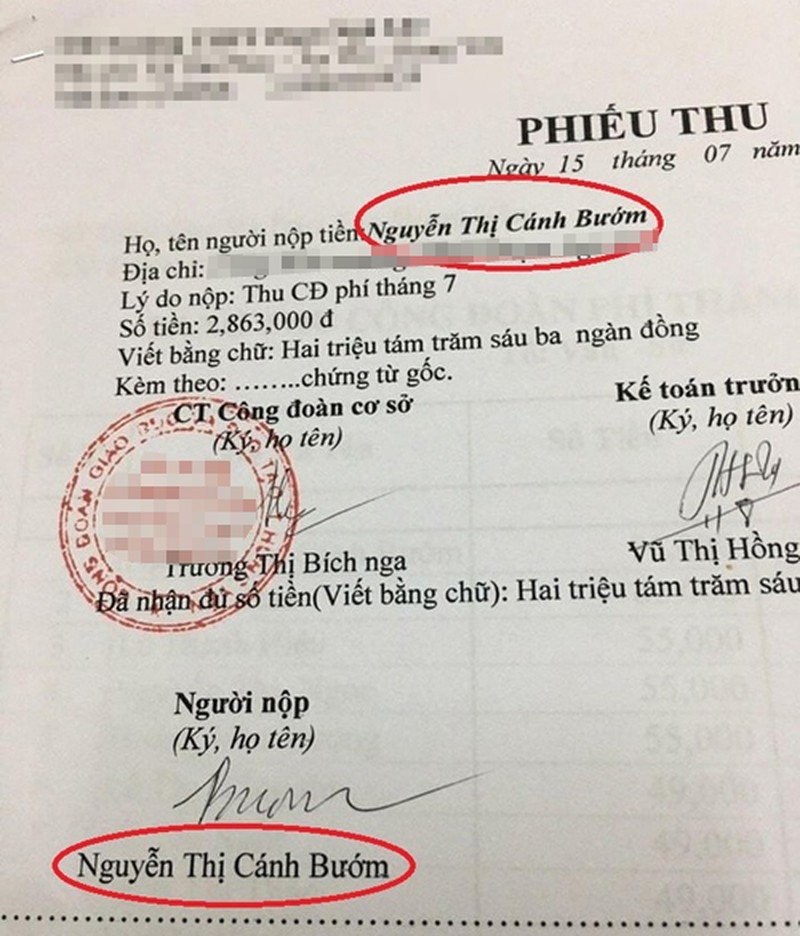 PHIẾU THU
Ngày 15 tháng 07 năm
Họ, tên người nộp tiền: Nguyễn Thị Cánh Bướm
Địa chỉ:
Lý do nộp: Thu CĐ phí tháng 7
Số tiền: 2,863,000 đ
Viết bằng chữ: Hai triệu tám trăm sáu ba ngàn đồng
Kèm theo: ........chứng từ gốc.
CT Công đoàn cơ sở
(Ký, họ tên)
Kế toán trưởn
(Ký, họ tên)
CÔNG ĐOÀN GIÁO
Trương Thị Bích nga
Vũ Thị Hồng
Đã nhận đủ số tiền(Viết bằng chữ): Hai triệu tám trăm sáu
55,000
55,000
55,000
49,000
49,000
49,000
Người nộp
(Ký, họ tên)
Bướm
Nguyễn Thị Cánh Bướm